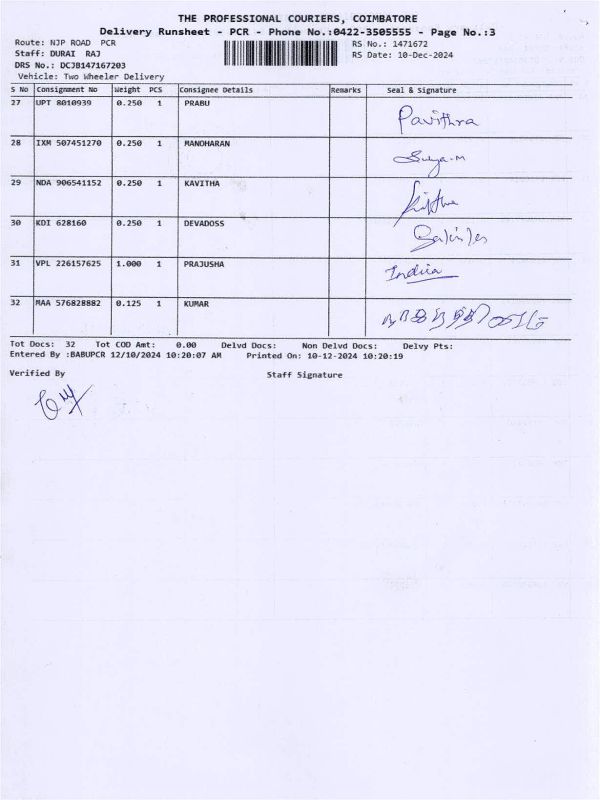 THE PROFESSIONAL COURIERS, COIMBATORE
Delivery Runsheet - PCR - Phone No.:0422-3505555 - Page No.:3
Route: NJP ROAD PCR RS No.: 1471672
Staff: DURAI RAJ RS Date: 10-Dec-2024
DRS No.: DCJB147167203
Vehicle: Two Wheeler Delivery
S No Consignment No Weight PCS Consignee Details Remarks Seal & Signature
27 UPT 8010939 0.250 1 PRABU Pavithra
28 IXM 507451270 0.250 1 MANOHARAN
29 NDA 906541152 0.250 1 KAVITHA
30 KDI 628160 0.250 1 DEVADOSS
31 VPL 226157625 1.000 1 PRAJUSHA Indira
32 MAA 576828882 0.125 1 KUMAR
Tot Docs: 32 Tot COD Amt: 0.00 Delvd Docs: Non Delvd Docs: Delvy Pts:
Entered By :BABUPCR 12/10/2024 10:20:07 AM Printed On: 10-12-2024 10:20:19
Verified By Staff Signature